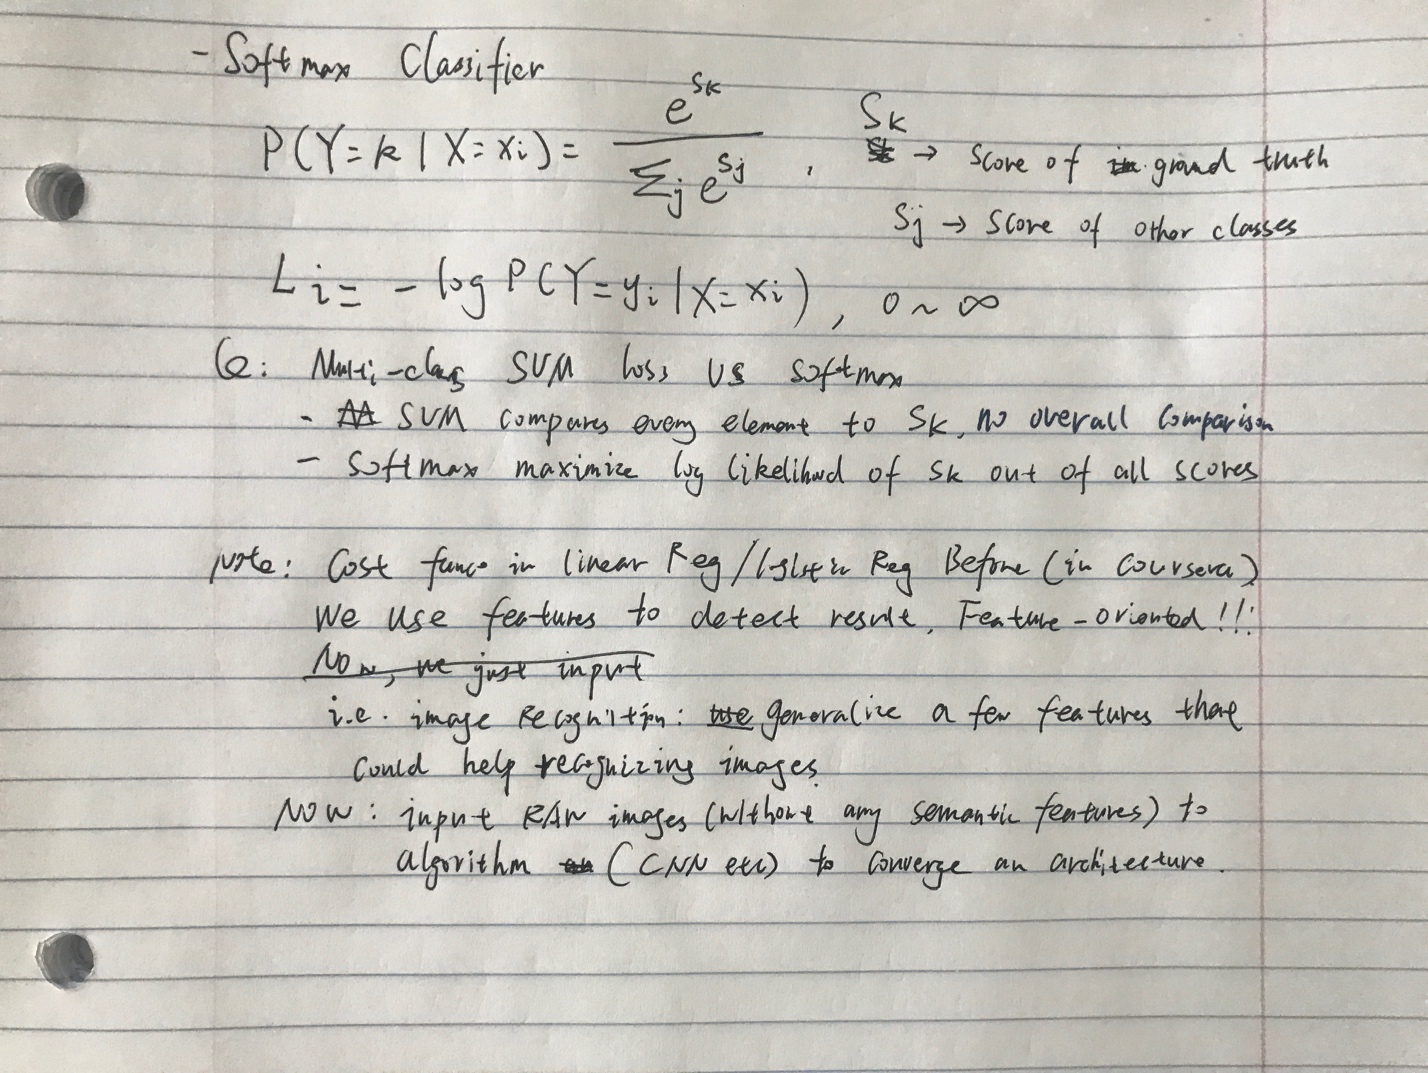 - Softmax Classifier
P(Y=k | X=xi) = e^Sk / Σj e^Sj , Sk → Score of ground truth
Sj → Score of other classes
Li = - log P(Y=yi | X=xi) , 0 ~ ∞
Q: Multi-class SVM loss VS softmax
- SVM compares every element to Sk, no overall comparison
- Softmax maximize log likelihood of Sk out of all scores
Note: Cost func in linear Reg/logistic Reg Before (in Coursera)
We use features to detect result. Feature-oriented!!!
Now, we just input
i.e. image Recognition: generalize a few features that
could help recognizing images.
NOW: input RAW images (without any semantic features) to
algorithm (CNN etc) to converge an architecture.